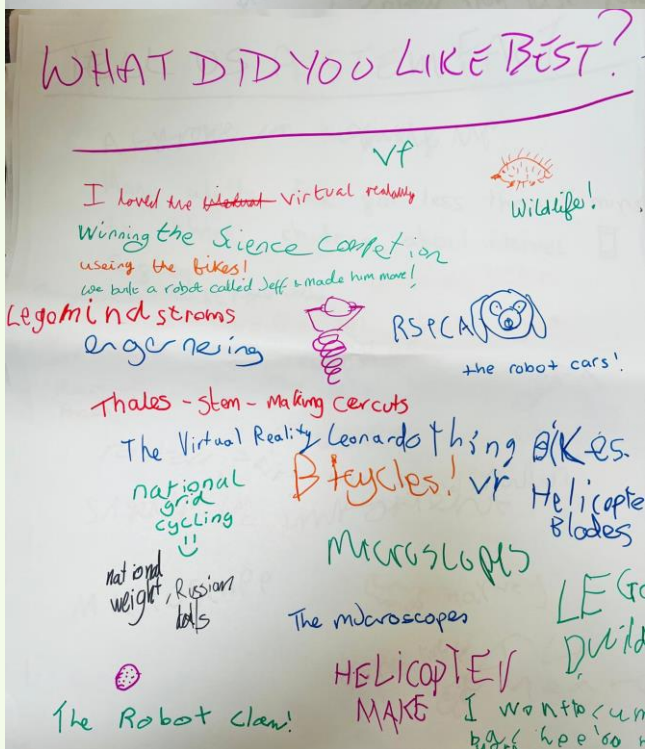 WHAT DID YOU LIKE BEST?
Vr
I loved the virtual reality
Wildlife!
Winning the Science Completion
useing the bikes!
we built a robot called Jeff & made him move!
Legomindstroms
RSPCA
engernering
the robot cars!
Thales - stem - making cercuts
The Virtual Reality Leonardo thing BIKES.
national
grid
cycling
Bicycles!
vr
Helicopte
Blades
Microscopes
national
weight, Russian
dolls
The microscopes
LEGO
build
HELICOPTER
MAKE
The Robot Claw!
I want to cum